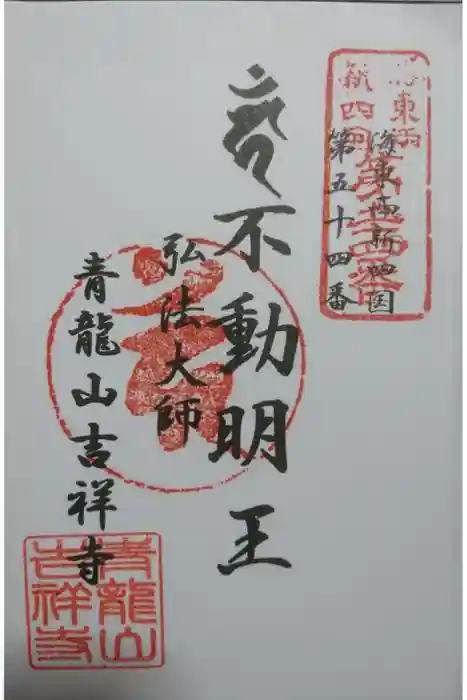 海東両新四国
第五十四番
不動明王
弘法大師
青龍山吉祥寺
青龍山
吉祥寺